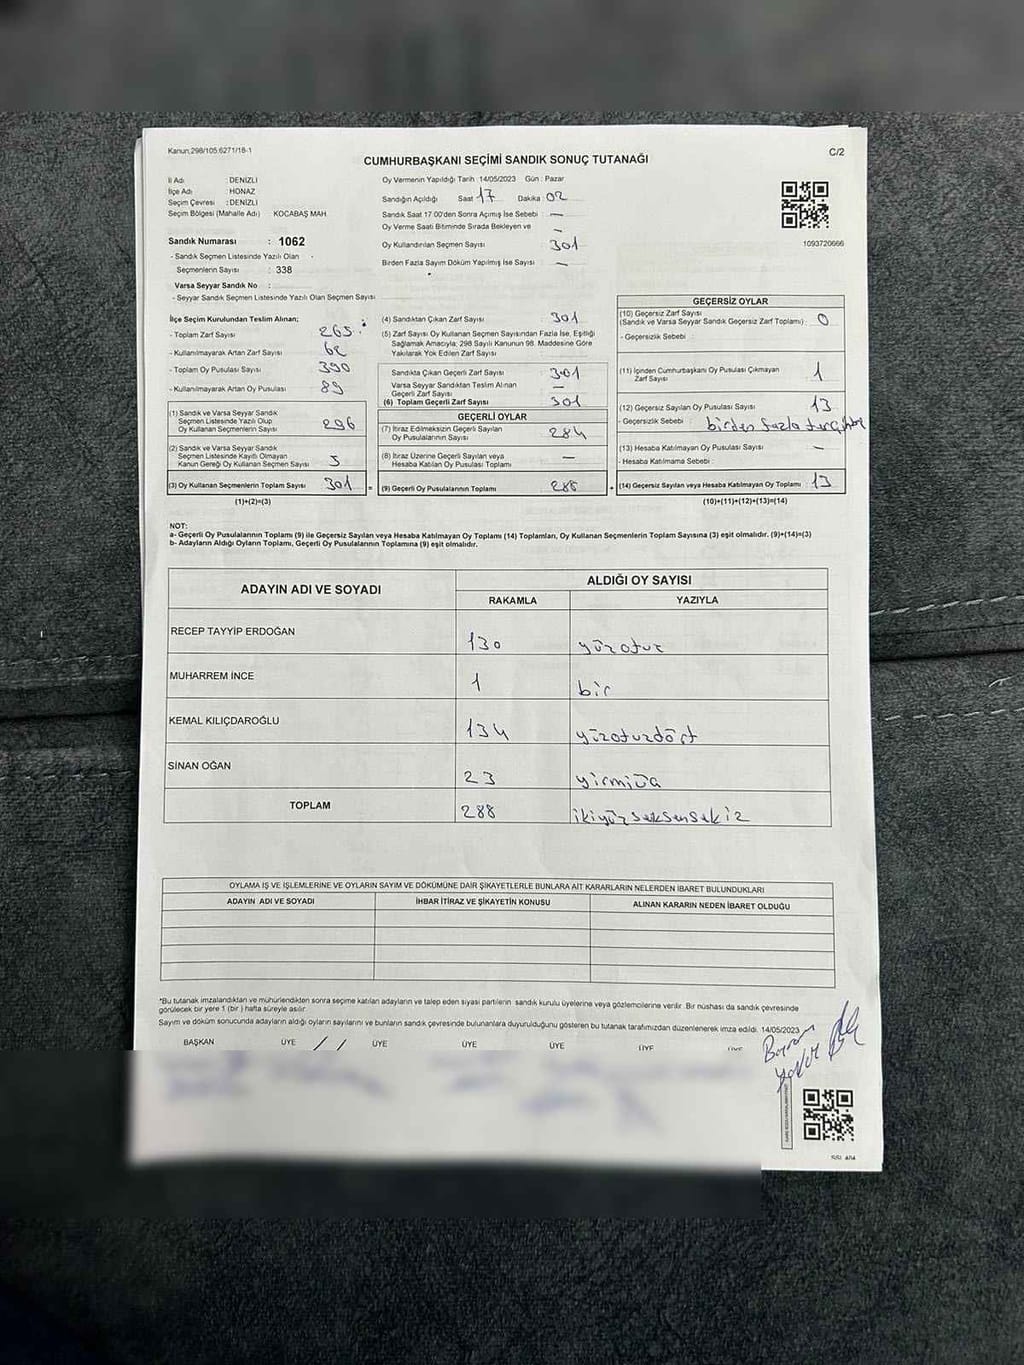 Kanun;298/105;6271/18-1
CUMHURBAŞKANI SEÇİMİ SANDIK SONUÇ TUTANAĞI
C/2
İl Adı : DENİZLİ
İlçe Adı : HONAZ
Seçim Çevresi : DENİZLİ
Seçim Bölgesi (Mahalle Adı) KOCABAŞ MAH.
Sandık Numarası : 1062
- Sandık Seçmen Listesinde Yazılı Olan
Seçmenlerin Sayısı : 338
Varsa Seyyar Sandık No :
- Seyyar Sandık Seçmen Listesinde Yazılı Olan Seçmen Sayısı
Oy Vermenin Yapıldığı Tarih : 14/05/2023 Gün : Pazar
Sandığın Açıldığı Saat 17 Dakika : 02
Sandık Saat 17:00'den Sonra Açımış İse Sebebi : —
Oy Verme Saati Bitiminde Sırada Bekleyen ve —
Oy Kullandırılan Seçmen Sayısı 301
Birden Fazla Sayım Döküm Yapılmış İse Sayısı : —
1093720666
İlçe Seçim Kurulundan Teslim Alınan;
- Toplam Zarf Sayısı
- Kullanılmayarak Artan Zarf Sayısı
- Toplam Oy Pusulası Sayısı 390
- Kullanılmayarak Artan Oy Pusulası 89
(1) Sandık ve Varsa Seyyar Sandık
Seçmen Listesinde Yazılı Olup
Oy Kullanan Seçmenlerin Sayısı 296
(2) Sandık ve Varsa Seyyar Sandık
Seçmen Listesinde Kayıtlı Olmayan
Kanun Gereği Oy Kullanan Seçmen Sayısı 5
(3) Oy Kullanan Seçmenlerin Toplam Sayısı 301
(1)+(2)=(3)
(4) Sandıktan Çıkan Zarf Sayısı 301
(5) Zarf Sayısı Oy Kullanan Seçmen Sayısından Fazla İse, Eşitliği
Sağlamak Amacıyla; 298 Sayılı Kanunun 98. Maddesine Göre
Yakılarak Yok Edilen Zarf Sayısı
Sandıkta Çıkan Geçerli Zarf Sayısı 301
Varsa Seyyar Sandıktan Teslim Alınan
Geçerli Zarf Sayısı —
(6) Toplam Geçerli Zarf Sayısı 301
GEÇERLİ OYLAR
(7) İtiraz Edilmeksizin Geçerli Sayılan
Oy Pusulalarının Sayısı
(8) İtiraz Üzerine Geçerli Sayılan veya
Hesaba Katılan Oy Pusulası Toplamı —
(9) Geçerli Oy Pusulalarının Toplamı 288
GEÇERSİZ OYLAR
(10) Geçersiz Zarf Sayısı
(Sandık ve Varsa Seyyar Sandık Geçersiz Zarf Toplamı) : 0
- Geçersizlik Sebebi :
(11) İçinden Cumhurbaşkanı Oy Pusulası Çıkmayan
Zarf Sayısı 1
(12) Geçersiz Sayılan Oy Pusulası Sayısı 13
- Geçersizlik Sebebi : birden fazla
(13) Hesaba Katılmayan Oy Pusulası Sayısı —
- Hesaba Katılmama Sebebi :
(14) Geçersiz Sayılan veya Hesaba Katılmayan Oy Toplamı 13
(10)+(11)+(12)+(13)=(14)
NOT:
a- Geçerli Oy Pusulalarının Toplamı (9) ile Geçersiz Sayılan veya Hesaba Katılmayan Oy Toplamı (14) Toplamları, Oy Kullanan Seçmenlerin Toplam Sayısına (3) eşit olmalıdır. (9)+(14)=(3)
b- Adayların Aldığı Oyların Toplamı, Geçerli Oy Pusulalarının Toplamına (9) eşit olmalıdır.
ADAYIN ADI VE SOYADI
ALDIĞI OY SAYISI
RAKAMLA YAZIYLA
RECEP TAYYİP ERDOĞAN 130 yüzotuz
MUHARREM İNCE 1 bir
KEMAL KILIÇDAROĞLU 134 yüzotuzdört
SİNAN OĞAN 23 yirmiüç
TOPLAM 288 ikiyüzseksensekiz
OYLAMA İŞ VE İŞLEMLERİNE VE OYLARIN SAYIM VE DÖKÜMÜNE DAİR ŞİKAYETLERLE BUNLARA AİT KARARLARIN NELERDEN İBARET BULUNDUKLARI
ADAYIN ADI VE SOYADI İHBAR İTİRAZ VE ŞİKAYETİN KONUSU ALINAN KARARIN NEDEN İBARET OLDUĞU
*Bu tutanak imzalandıktan ve mühürlendikten sonra seçime katılan adayların ve talep eden siyasi partilerin sandık kurulu üyelerine veya gözlemcilerine verilir. Bir nüshası da sandık çevresinde
görülecek bir yere 1 (bir ) hafta süreyle asılır.
Sayım ve döküm sonucunda adayların aldığı oyların sayılarını ve bunların sandık çevresinde bulunanlara duyurulduğunu gösteren bu tutanak tarafımızdan düzenlenerek imza edildi. 14/05/2023
BAŞKAN ÜYE ÜYE ÜYE ÜYE ÜYE ÜYE